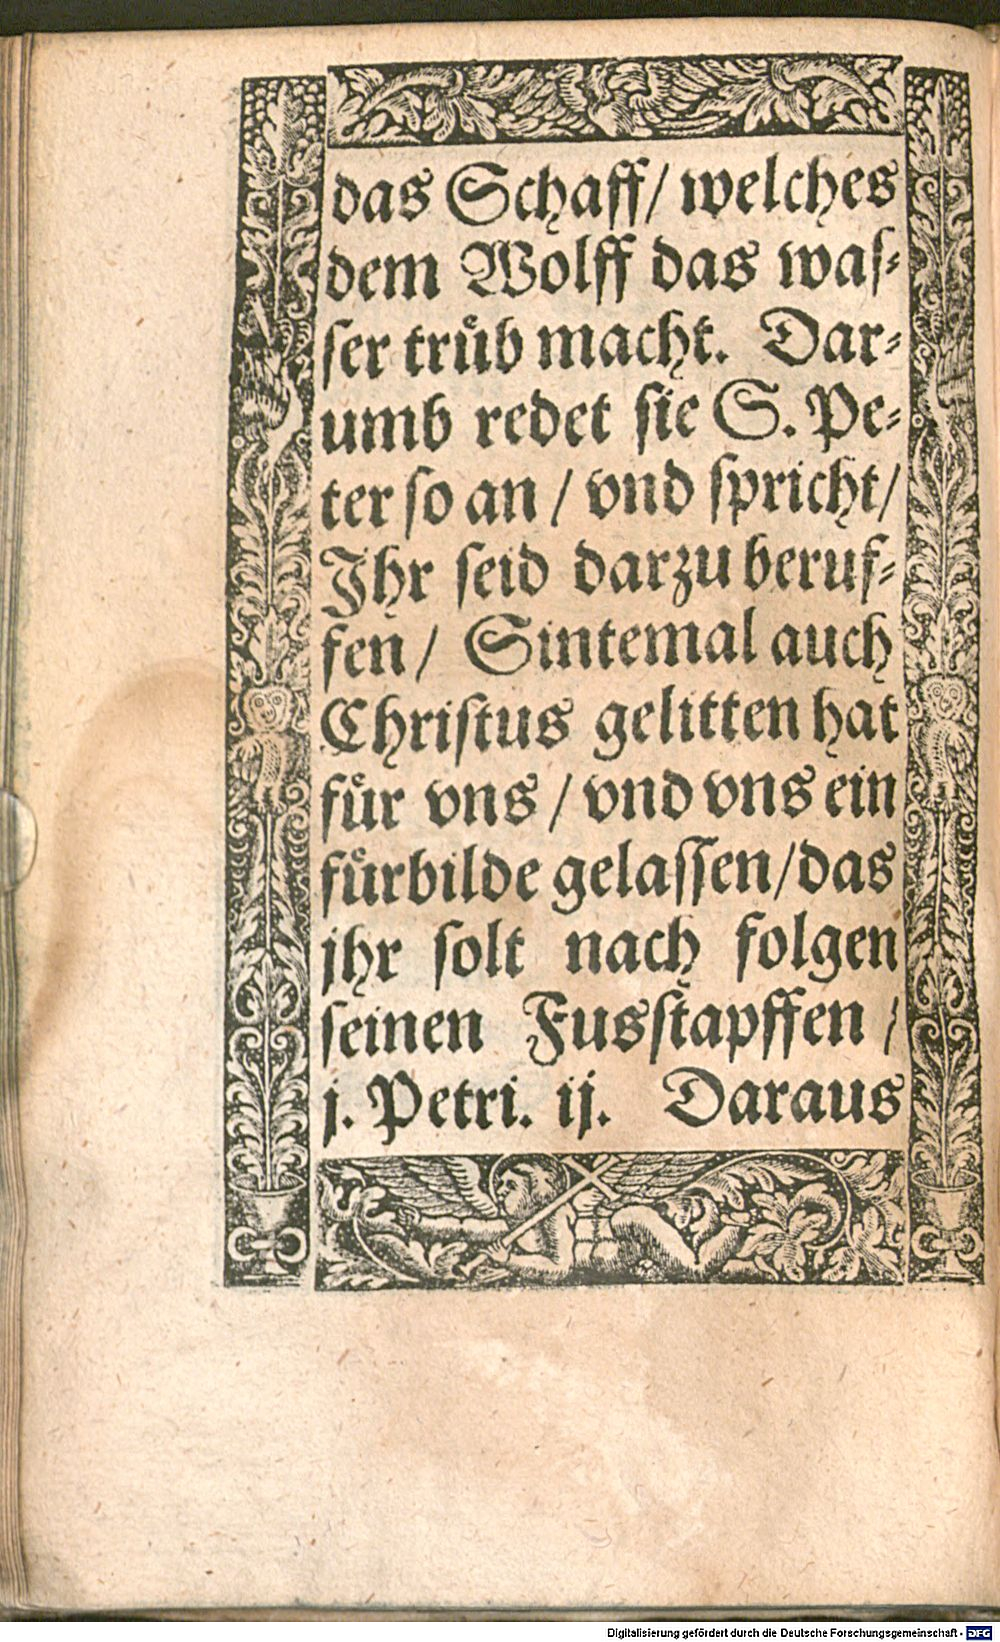 das Schaff/ welches
dem Wolff das waſ⸗
ſer truͤb macht. Dar⸗
umb redet ſie S. Pe⸗
ter ſo an / vnd ſpricht/
Jhr ſeid darzu beruf⸗
fen/ Sintemal auch
Chriſtus gelitten hat
fuͤr vns / vnd vns ein
fuͤrbilde gelaſſen/das
jhr ſolt nach folgen
ſeinen Fusſtapffen /
j. Petri. ij. Daraus
Digitalisierung gefördert durch die Deutsche Forschungsgemeinschaft - DFG